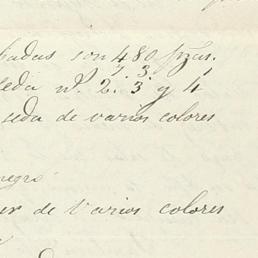 son 480 pzas.
seda nº. 2. 3 y 4
seda de varios colores
negro
de varios colores